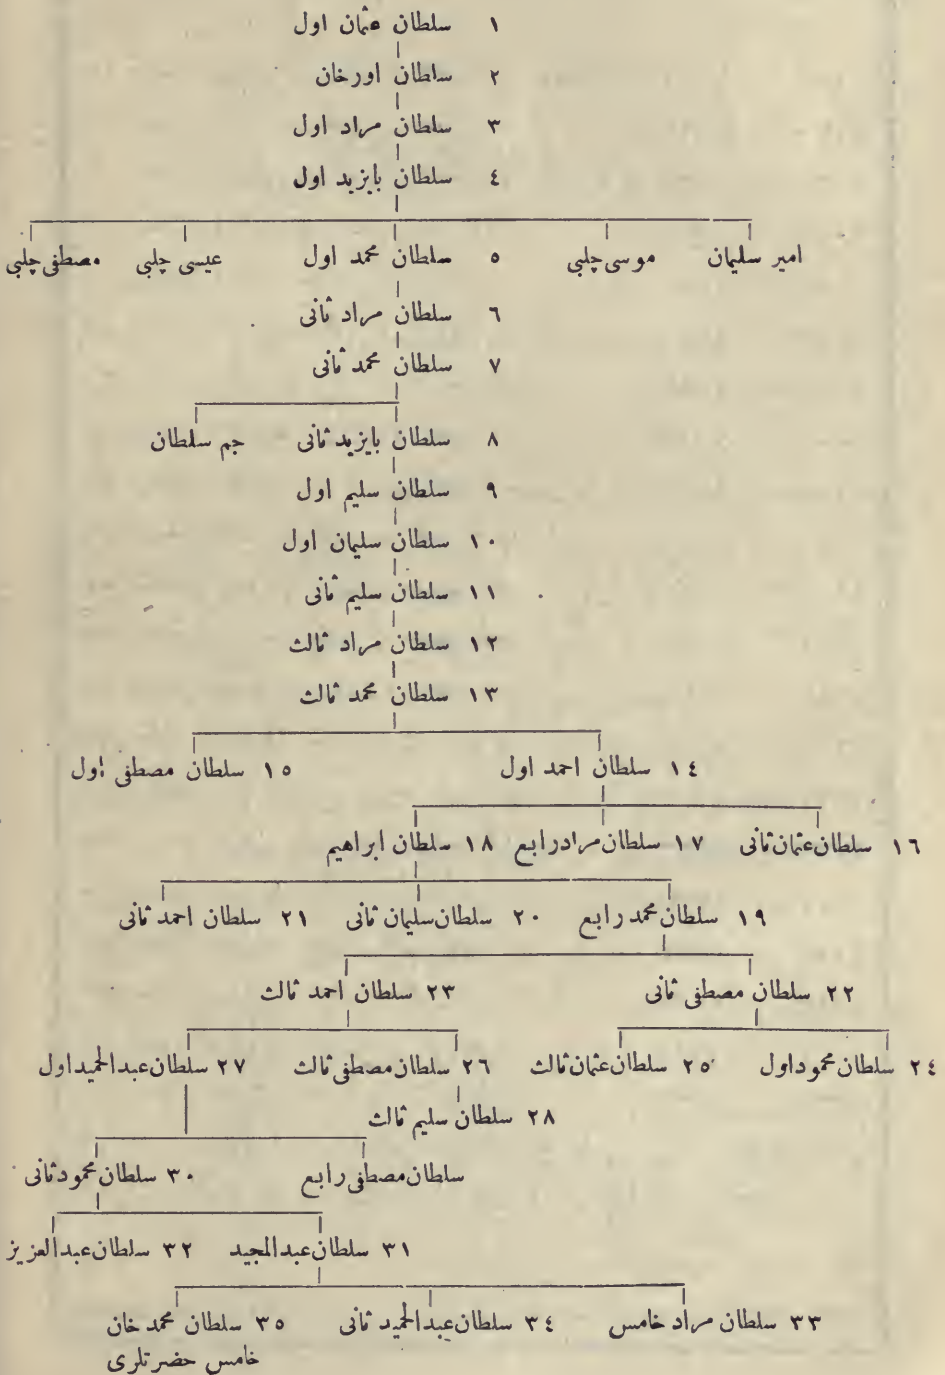 ١ سلطان عثمان اول
٢ سلطان اورخان
٣ سلطان مراد اول
٤ سلطان بايزيد اول
امير سليمان موسى چلبى ٥ سلطان محمد اول عيسى چلبى مصطفى چلبى
٦ سلطان مراد ثانى
٧ سلطان محمد ثانى
٨ سلطان بايزيد ثانى جم سلطان
٩ سلطان سليم اول
١٠ سلطان سليمان اول
١١ سلطان سليم ثانى
١٢ سلطان مراد ثالث
١٣ سلطان محمد ثالث
١٤ سلطان احمد اول ١٥ سلطان مصطفى اول
١٦ سلطان عثمان ثانى ١٧ سلطان مراد رابع ١٨ سلطان ابراهيم
١٩ سلطان محمد رابع ٢٠ سلطان سليمان ثانى ٢١ سلطان احمد ثانى
٢٢ سلطان مصطفى ثانى ٢٣ سلطان احمد ثالث
٢٤ سلطان محمود اول ٢٥ سلطان عثمان ثالث ٢٦ سلطان مصطفى ثالث ٢٧ سلطان عبدالحميد اول
٢٨ سلطان سليم ثالث
سلطان مصطفى رابع ٣٠ سلطان محمود ثانى
٣١ سلطان عبدالمجيد ٣٢ سلطان عبدالعزيز
٣٣ سلطان مراد خامس ٣٤ سلطان عبدالحميد ثانى ٣٥ سلطان محمد خان
خامس حضرتلرى